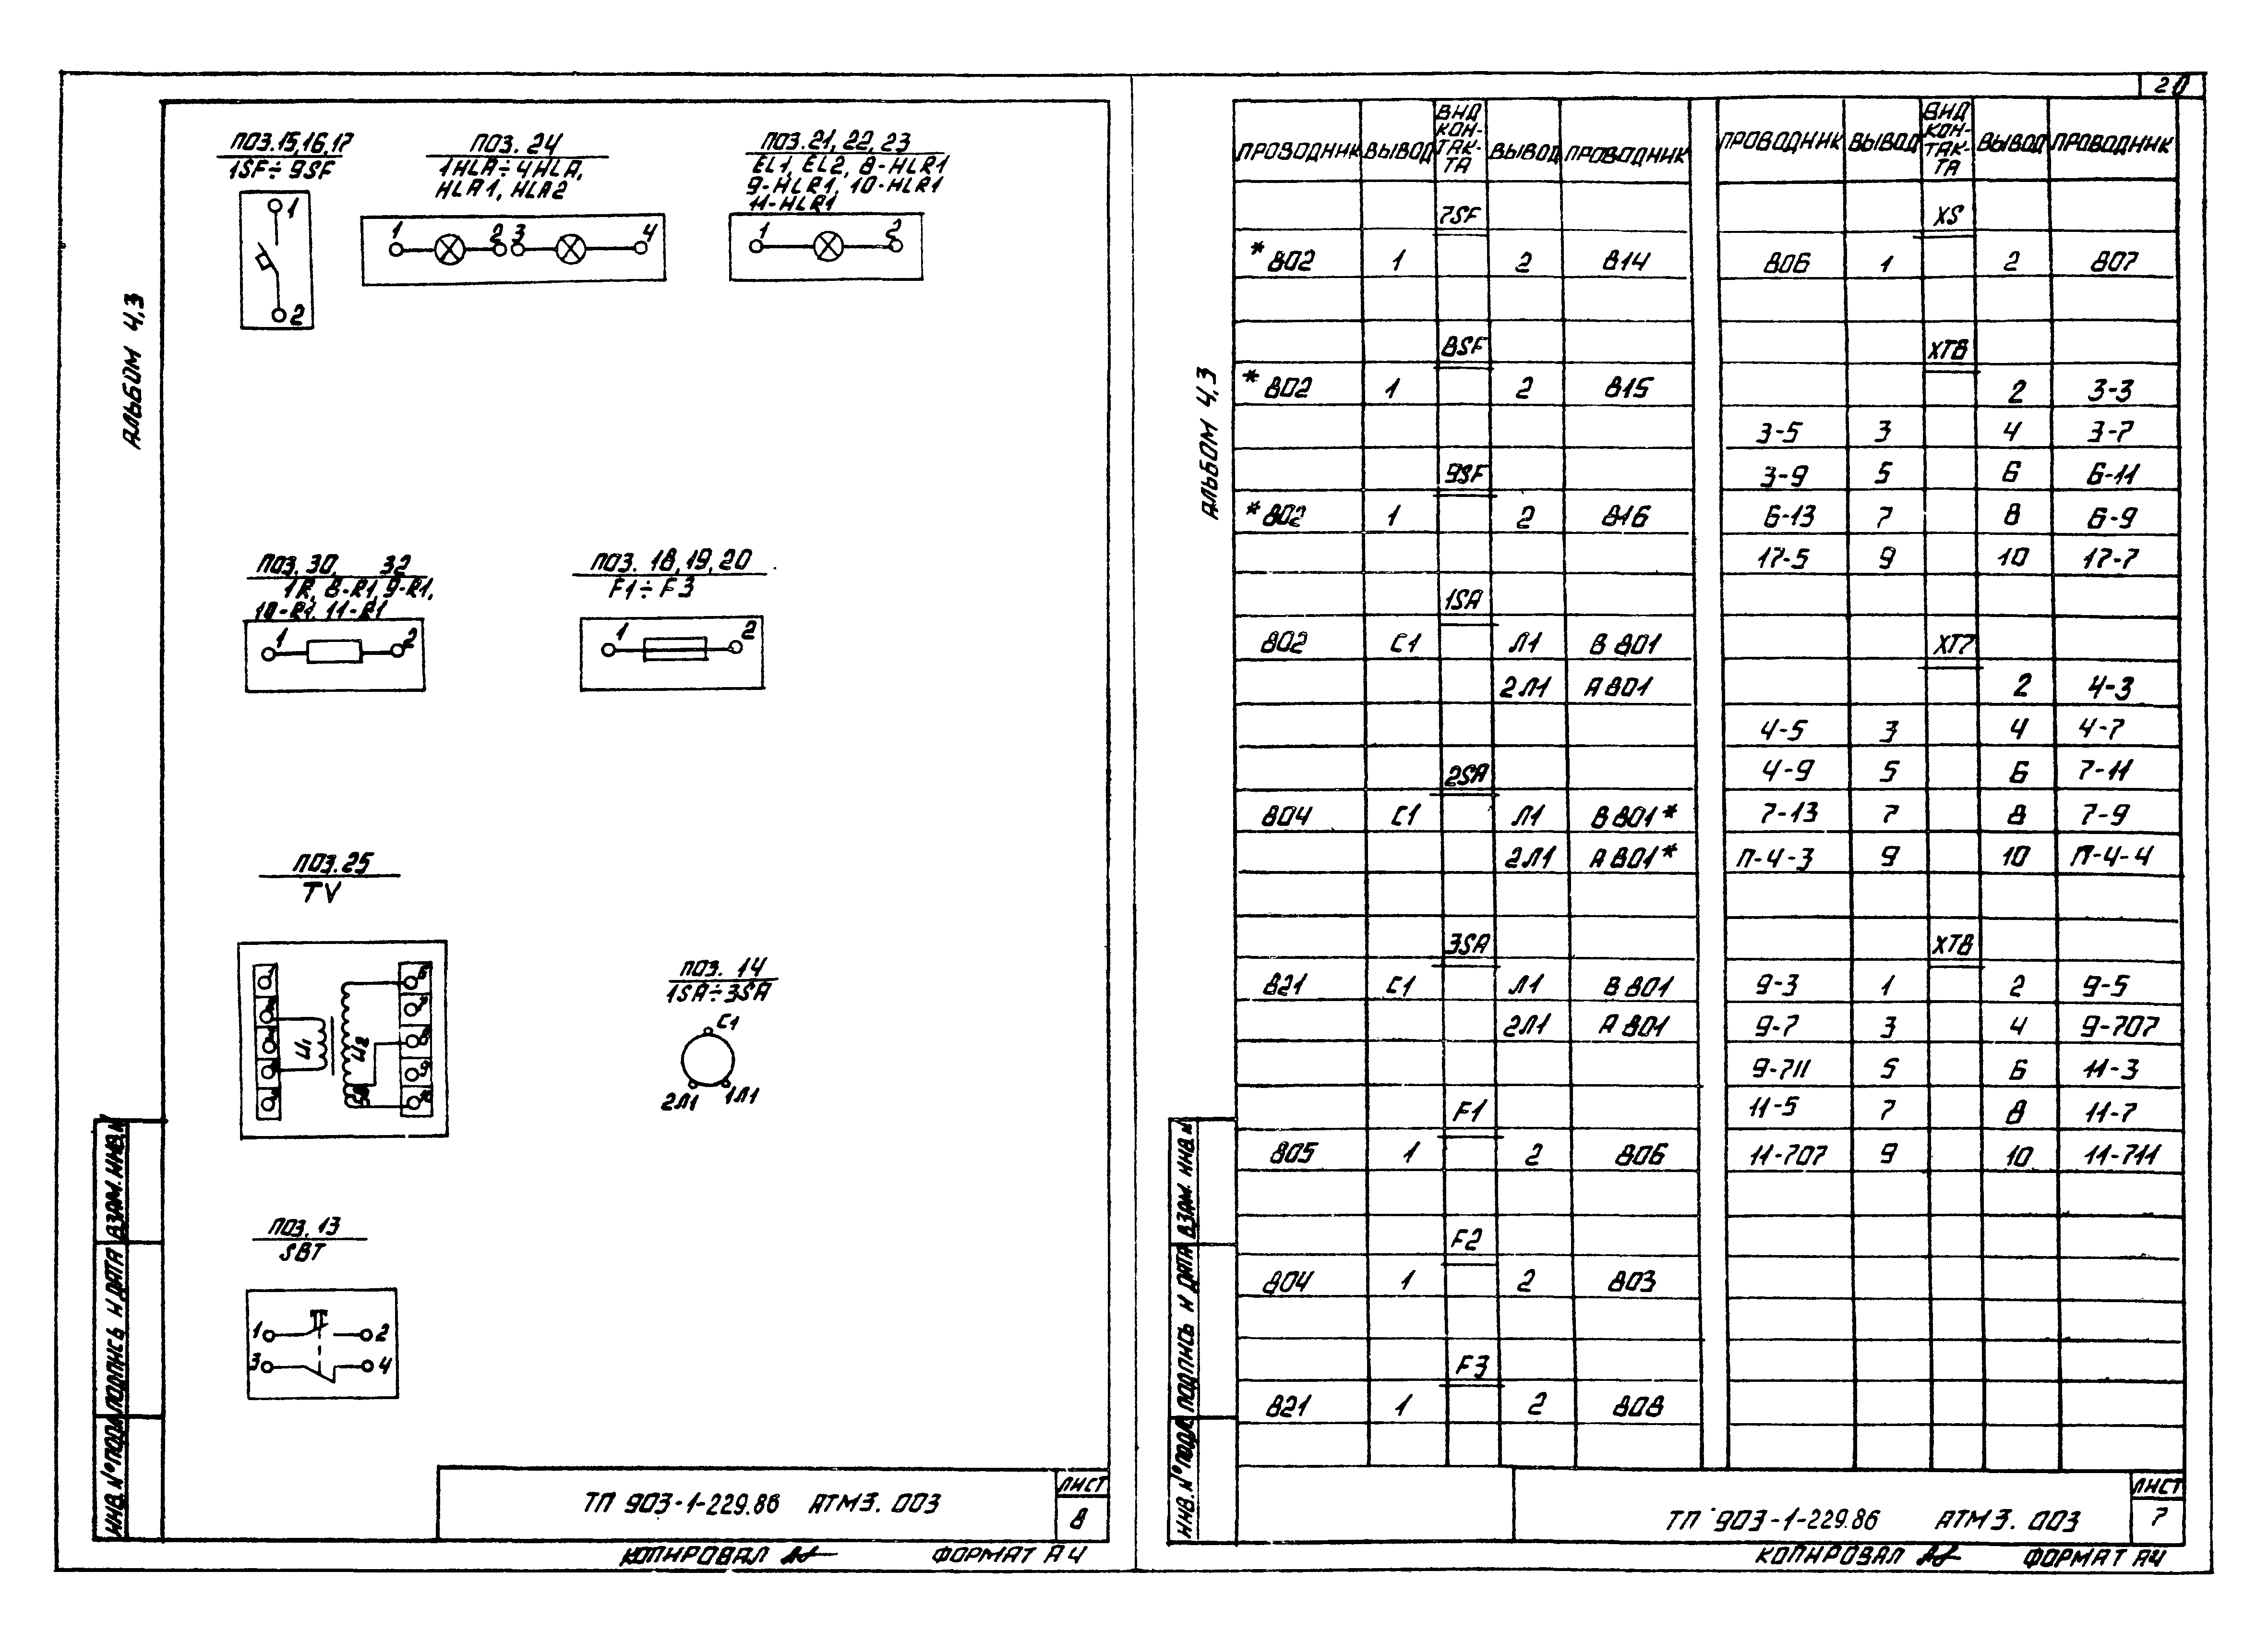 20
ПОЗ.15,16,17
1SF÷9SF
1
2
ПОЗ. 24
1HLA÷4HLA,
HLA1, HLA2
1 2 3 4
ПОЗ.21, 22, 23
EL1, EL2, 8-HLR1
9-HLR1, 10-HLR1
11-HLR1
1 2
АЛЬБОМ 4,3
ПОЗ. 30, 32
1R, 8-R1, 9-R1,
10-R1, 11-R1
1 2
ПОЗ. 18, 19, 20
F1÷F3
1 2
ПОЗ.25
TV
ПОЗ. 14
1SA÷3SA
C1
2Л1 1Л1
ПОЗ. 13
SBT
1 2
3 4
ВЗАМ. ИНВ. №
ПОДПИСЬ И ДАТА
ИНВ. № ПОДЛ
ТП 903-1-229.86 АТМ3. 003
ЛИСТ
8
КОПИРОВАЛ
ФОРМАТ А4
АЛЬБОМ 4,3
ПРОВОДНИК ВЫВОД ВИД КОН-ТАК-ТА ВЫВОД ПРОВОДНИК
7SF
*802 1 2 814
8SF
*802 1 2 815
9SF
*802 1 2 816
1SA
802 C1 Л1 В 801
2Л1 А 801
2SA
804 C1 Л1 В 801*
2Л1 А 801*
3SA
821 C1 Л1 В 801
2Л1 А 801
F1
805 1 2 806
F2
804 1 2 803
F3
821 1 2 808
ПРОВОДНИК ВЫВОД ВИД КОН-ТАК-ТА ВЫВОД ПРОВОДНИК
XS
806 1 2 807
XT6
2 3-3
3-5 3 4 3-7
3-9 5 6 6-11
6-13 7 8 6-9
17-5 9 10 17-7
XT7
2 4-3
4-5 3 4 4-7
4-9 5 6 7-11
7-13 7 8 7-9
П-4-3 9 10 П-4-4
XT8
9-3 1 2 9-5
9-7 3 4 9-707
9-711 5 6 11-3
11-5 7 8 11-7
11-707 9 10 11-711
ВЗАМ. ИНВ. №
ПОДПИСЬ И ДАТА
ИНВ. № ПОДЛ
ТП 903-1-229.86 АТМ3. 003
ЛИСТ
7
КОПИРОВАЛ
ФОРМАТ А4